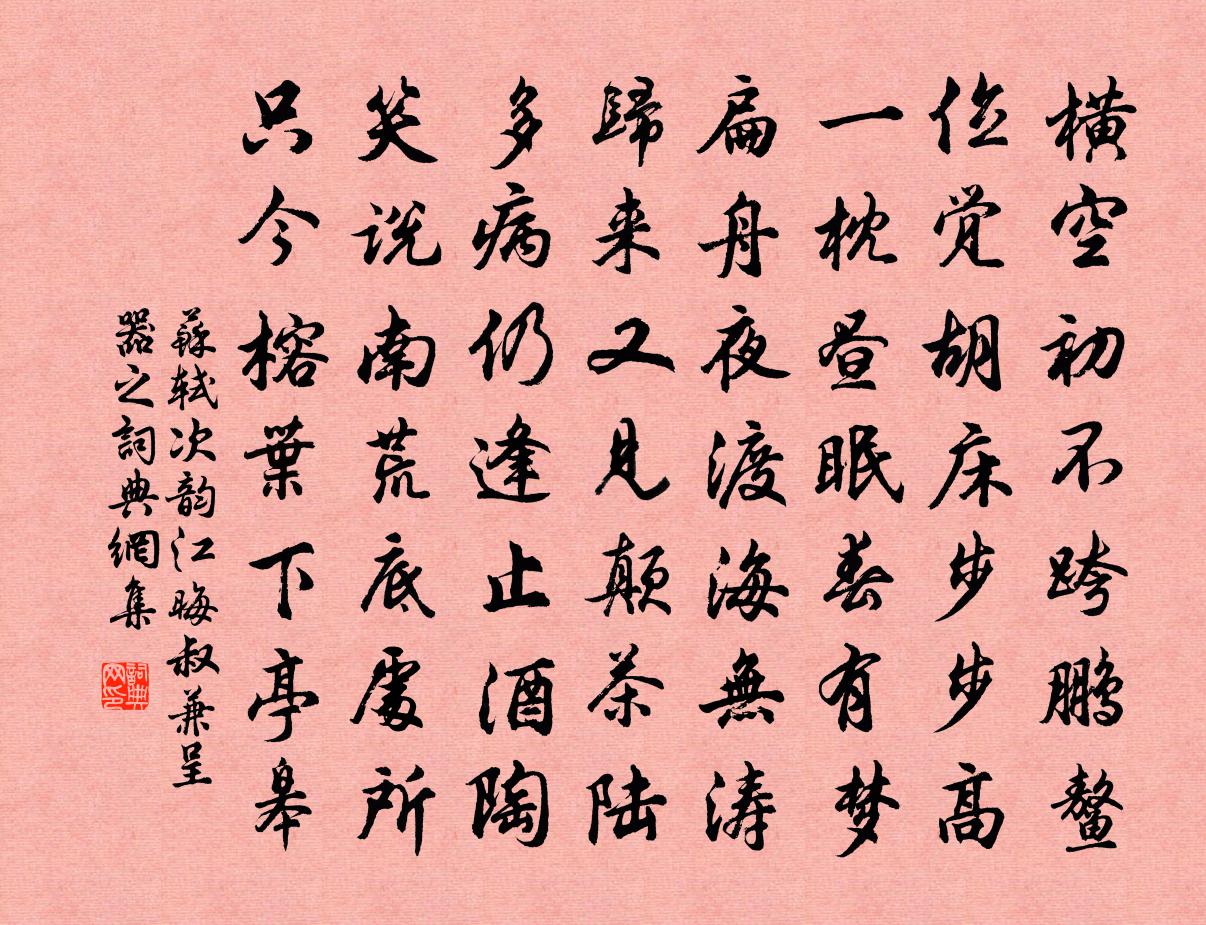 横空初不跨鹏鳌
但觉胡床步步高
一枕昼眠春有梦
扁舟夜渡海無涛
歸来又見颠茶陆
多病仍逢止酒陶
笑说南荒底處所
只今榕葉下亭皋
蘇轼次韵江晦叔兼呈
器之詞典網集
詞典网印